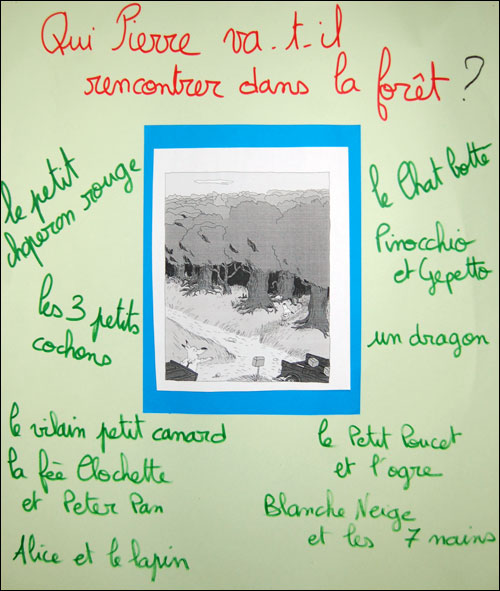 Qui Pierre va-t-il
rencontrer dans la forêt ?
le petit
chaperon rouge
les 3 petits
cochons
le vilain petit canard
la fée Clochette
et Peter Pan
Alice et le lapin
le Chat botte
Pinocchio
et Gepetto
un dragon
le Petit Poucet
et l'ogre
Blanche Neige
et les 7 nains